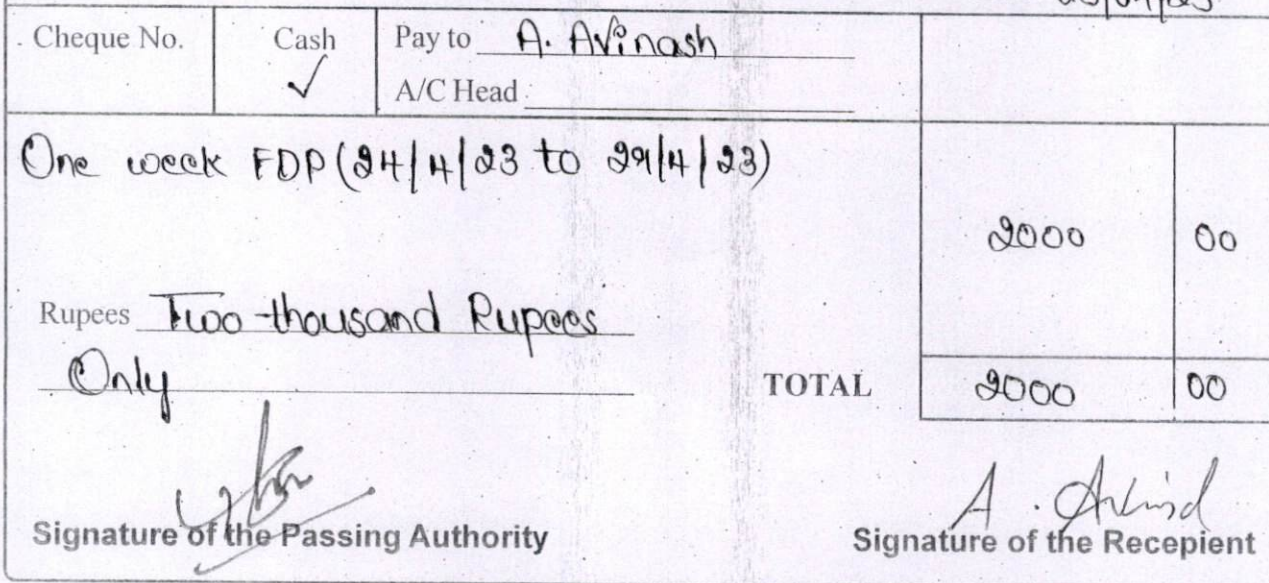 Cheque No. Cash Pay to A. Avinash
✓ A/C Head :
One week FDP (24/4/23 to 29/4/23)
2000 00
Rupees Two-thousand Rupees
Only
TOTAL 2000 00
A.
Signature of the Passing Authority Signature of the Recepient